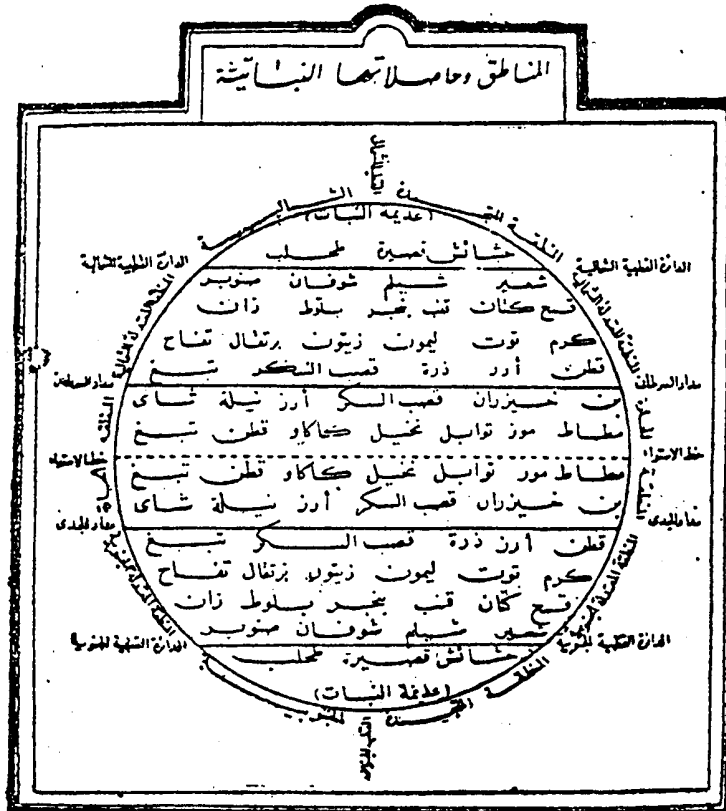 المناطق وحاصلاتها النباتية
القطب الشمالي
المنطقة المتجمدة الشمالية
(عديمة النبات)
حشائش قصيرة طحلب
الدائرة القطبية الشمالية
الدائرة القطبية الشمالية
شعير شيلم شوفان صنوبر
قمح كتان قنب بنجر بلوط زان
المنطقة المعتدلة الشمالية
المنطقة المعتدلة الشمالية
كرم توت ليمون زيتون برتقال تفاح
قطن أرز ذرة قصب السكر تبغ
مدار السرطان
مدار السرطان
بن خيزران قصب السكر أرز نيلة شاى
مطاط موز توابل نخيل كاكاو قطن تبغ
المنطقة الحارة
المنطقة الحارة
خط الاستواء
خط الاستواء
مطاط موز توابل نخيل كاكاو قطن تبغ
بن خيزران قصب السكر أرز نيلة شاى
مدار الجدى
مدار الجدى
قطن أرز ذرة قصب السكر تبغ
كرم توت ليمون زيتون برتقال تفاح
المنطقة المعتدلة الجنوبية
المنطقة المعتدلة الجنوبية
قمح كتان قنب بنجر بلوط زان
شعير شيلم شوفان صنوبر
الدائرة القطبية الجنوبية
الدائرة القطبية الجنوبية
حشائش قصيرة طحلب
(عديمة النبات)
المنطقة المتجمدة الجنوبية